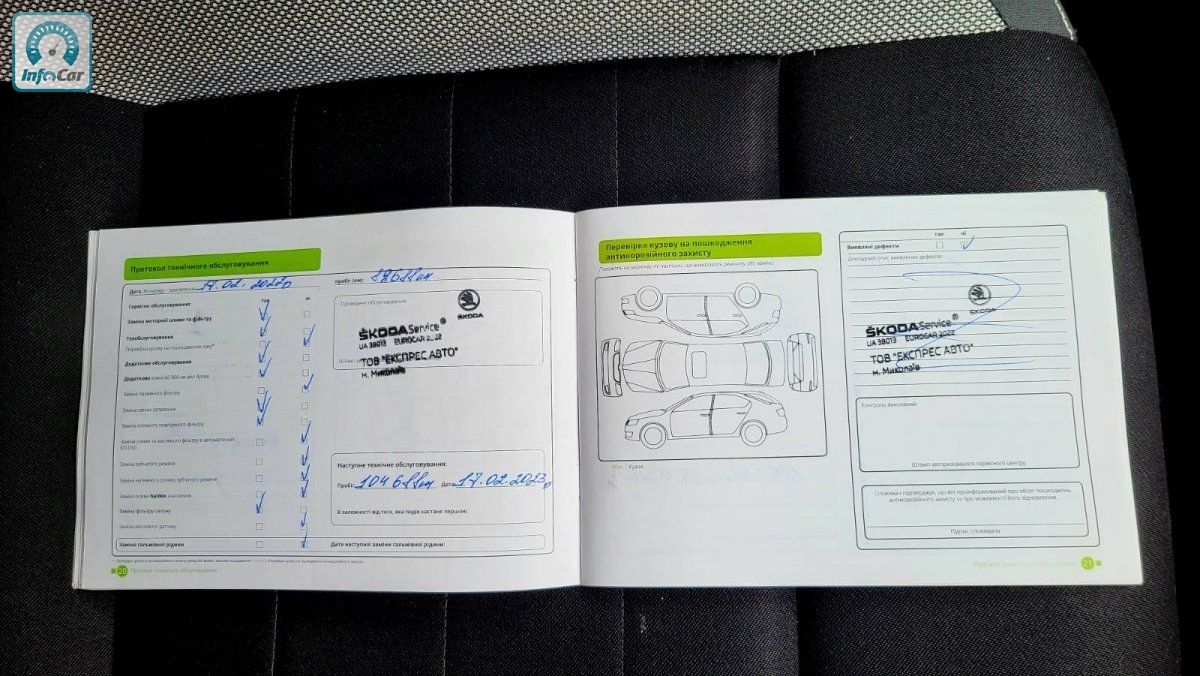 InfoCar
Протокол технічного обслуговування
Дата 17.02.2022р
пробіг (км):
Сервісне обслуговування:
так
ні
Заміна моторної оливи та фільтру
Техобслуговування
Перевірка кузову на пошкодження лаку*
Додаткове обслуговування
Додатково кожні 60 000 км або 4 роки
Заміна паливного фільтру
Заміна свічок запалення
Заміна елементу повітряного фільтру
Заміна оливи та масляного фільтру в автоматичній
Заміна зубчатого ременя
Заміна натяжного ролику зубчатого ременя
Заміна оливи haldex
Заміна фільтру салону
Заміна гальмівної рідини
Проведене обслуговування:
ŠKODA
ŠKODA Service®
UA 38013 EUROCAR 2022
ТОВ "ЕКСПРЕС АВТО"
м. Миколаїв
Наступне технічне обслуговування:
Пробіг 104611км Дата 17.02.2023р
В залежності від того, яка подія настане першою.
Дата наступної заміни гальмівної рідини:
20 Протокол технічного обслуговування
Перевірка кузову на пошкодження
антикорозійного захисту
Кузов
так
ні
Виявлені дефекти
Докладний опис виявлених дефектів:
ŠKODA
ŠKODA Service®
UA 38013 EUROCAR 2022
ТОВ "ЕКСПРЕС АВТО"
м. Миколаїв
Контроль виконаний:
Штамп авторизованого сервісного центру
Споживач підтверджує, що він проінформований про обсяг пошкоджень
антикорозійного захисту та про можливості його відновлення.
Підпис споживача
Протокол технічного обслуговування 21